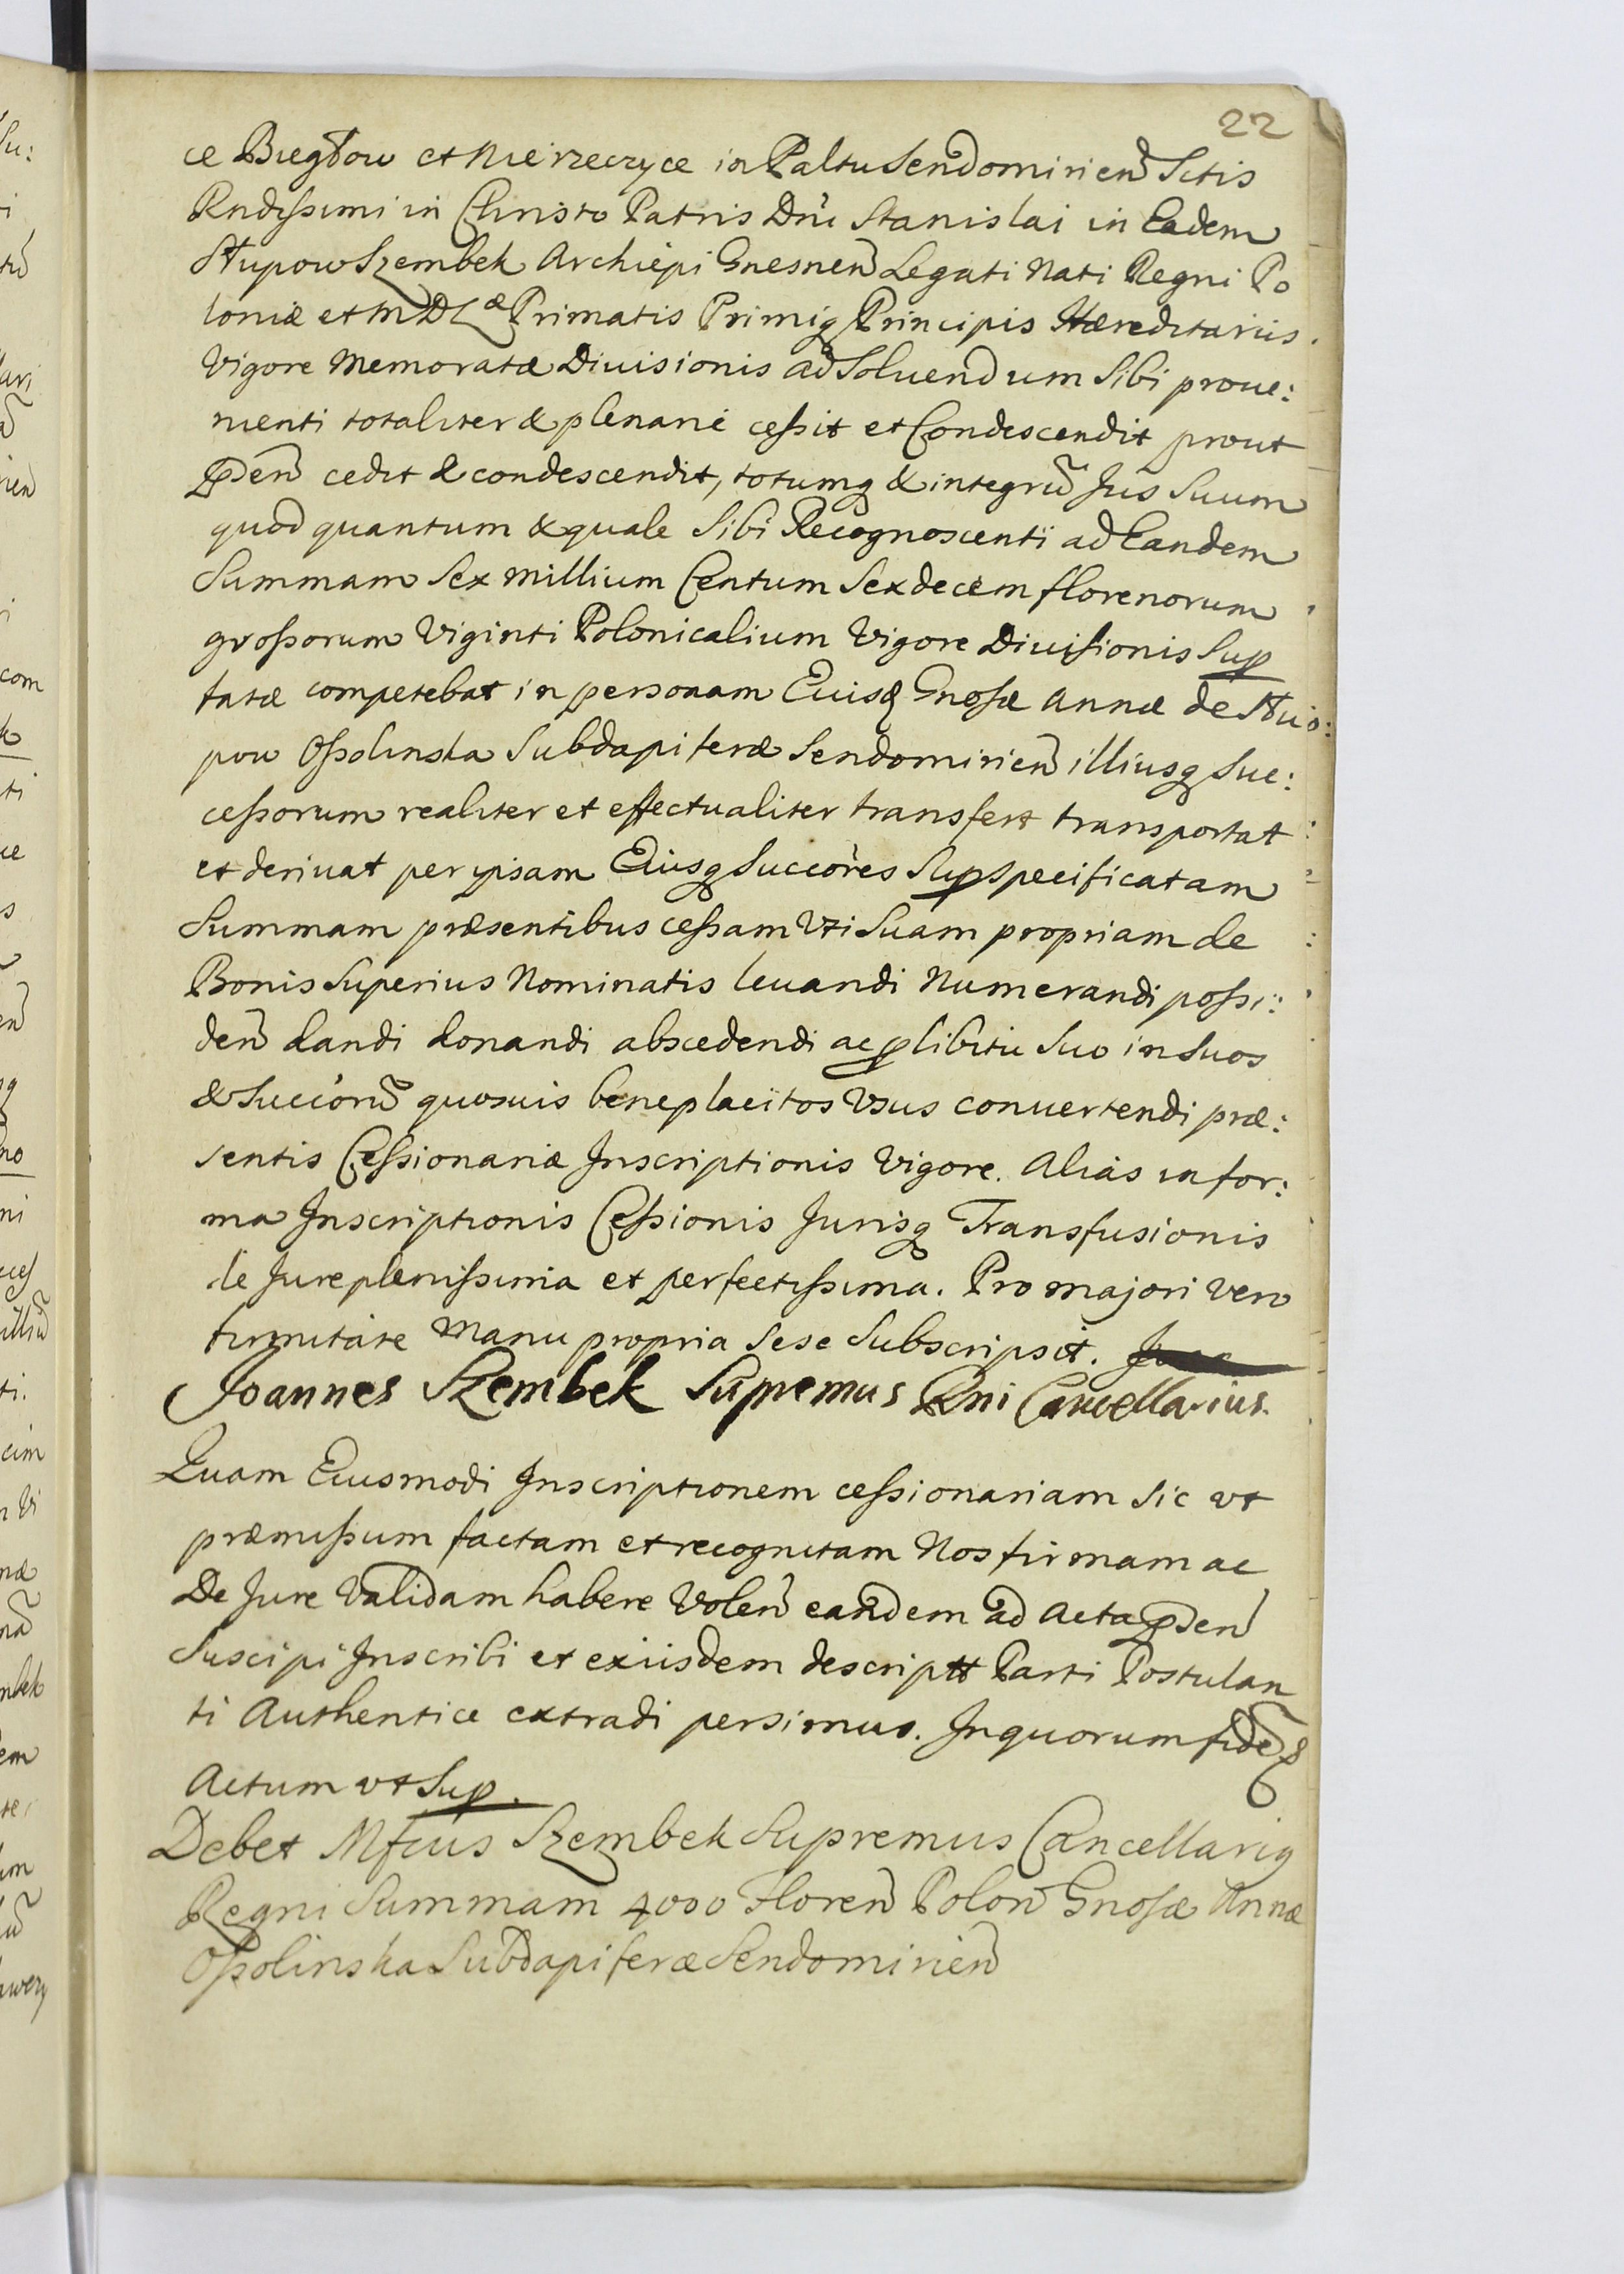 22
ce Biegdow et Nierzeczyce in Paltu Sendomirien̄ Sitis
Rndissimi in Christo Patris Dn̄i Stanislai in Eadem
Słupow Szembek Archiep̄i Gnesnen̄ Legati Nati Regni Po
loniæ et M D Lᵃᵉ Primatis Primiq Principis Hæreditariis
Vigore Memoratæ Diuisionis ad Soluendum Sibi proue:
nienti totaliter & plenarie cessit et Condescendit prout
p̄den̄ cedit & condescendit, totumq & integrū Jus Suum
quod quantum & quale Sibi Recognoscenti ad Eandem
Summam Sex Millium Centum Sexdecem florenorum
grossorum Viginti Polonicalium Vigore Diuisionis Sup
tatæ competebat in personam Euisd Gnosæ Annæ de Słu:
pow Ossolinska Subdapiferæ Sendomirien̄ illiusq Suc:
cessorum realiter et effectualiter transfert transportat
et deriuat per ipsam Eiusq Succōres Sup specificatam
Summam præsentibus cessam Vti Suam propriam de
Bonis Superius Nominatis leuandi Numerandi possi:
den̄ dandi donandi abscedendi ac p libitu Suo in Suos
& Succōrū quosuis beneplacitos Vsus conuertendi præ:
sentis Cessionariæ Inscriptionis Vigore. Alias in for:
ma Inscriptionis Cessionis Jurisq Transfusionis
de Jure plenissima et perfectissima. Pro majori vero
firmitate Manu propria Sese Subscripsit.
Joannes Szembek Supremus Rni Cancellarius.
Quam Eiusmodi Inscriptionem cessionariam Sic vt
præmissum factam et recognitam Nos firmam ac
De Jure Validam habere Volen̄ eandem ad Acta p̄den̄
Suscipi Inscribi et exiisdem descriptt Parti Postulan
ti Authentice extradi persimus. In quorum fidē
Actum vt Sup.
Debet Mfcus Szembek Supremus Cancellariq
Regni Summam 4000 Floren̄ Polon̄ Gnosæ Annæ
Ossolinska Subdapiferæ Sendomirien̄